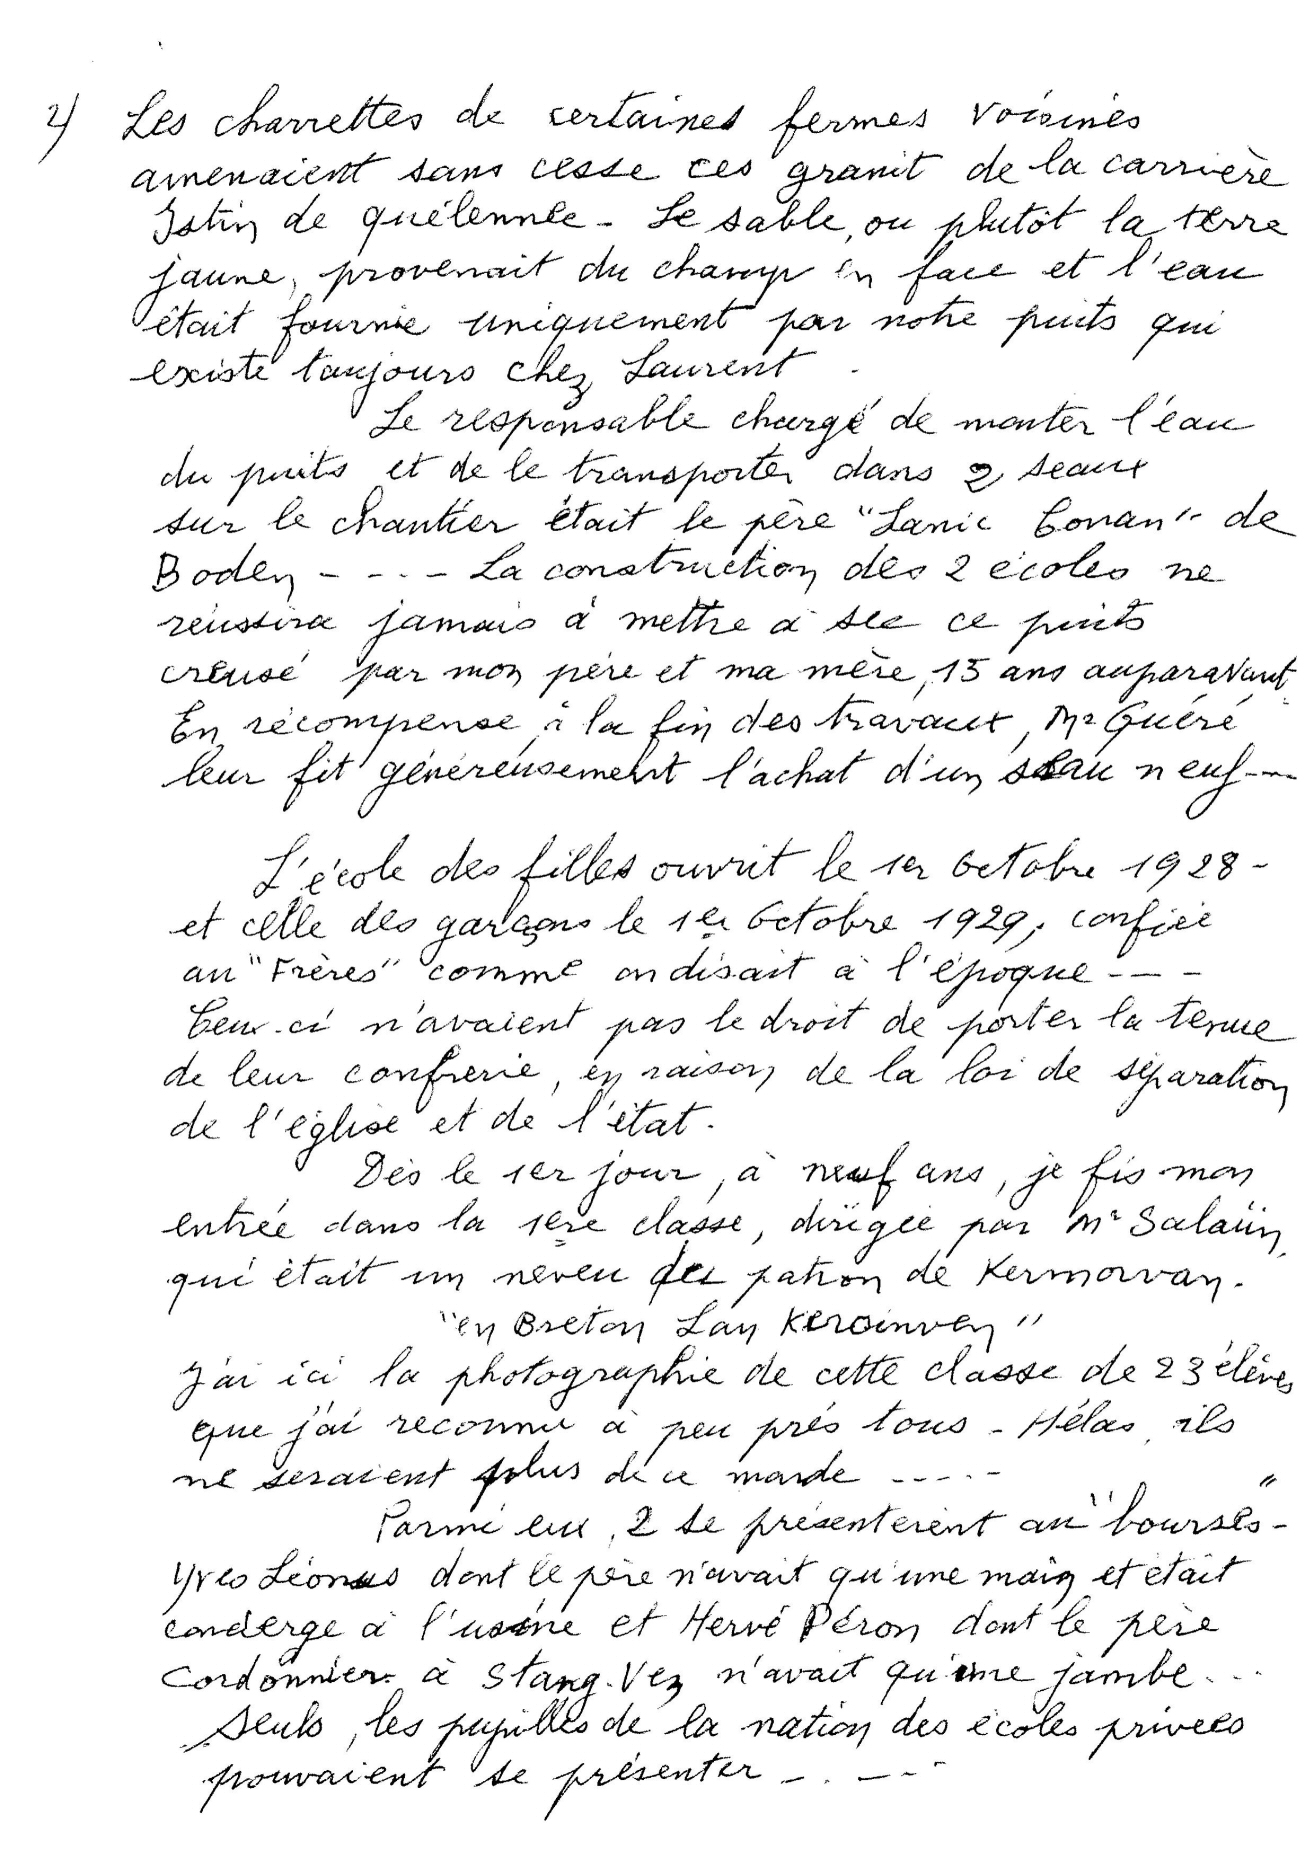 2) Les charrettes de certaines fermes voisines
amenaient sans cesse ces granit de la carrière
Istin de quélennée - Le sable, ou plutôt la terre
jaune, provenait du champ en face et l'eau
était fournie uniquement par notre puits qui
existe toujours chez Laurent.
Le responsable chargé de monter l'éau
du puits et de le transporter dans 2 seaux
sur le chantier était le père "Lanic Conan" de
Boden - - - - La construction des 2 écoles ne
réussira jamais à mettre à sec ce puits
creusé par mon père et ma mère, 15 ans auparavant.
En récompense, à la fin des travaux, Mr Guéré
leur fit généreusement l'achat d'un seau neuf ---
L'école des filles ouvrit le 1er Octobre 1928 -
et celle des garçons le 1er Octobre 1929, confiée
au "Frères" comme on disait à l'époque - - -
Ceux-ci n'avaient pas le droit de porter la tenue
de leur confrérie, en raison de la loi de séparation
de l'église et de l'état.
Dès le 1er jour, à neuf ans, je fis mon
entrée dans la 1ère classe, dirigée par Mr Salaün,
qui était un neveu du patron de Kermorvan.
"en Breton Lan Keroinven"
J'ai ici la photographie de cette classe de 23 élèves
que j'ai reconnu à peu près tous - Hélas, ils
ne seraient plus de ce monde - - - - -
Parmi eux, 2 se présentèrent au "bourses" -
Yves Léonus dont le père n'avait qu'une main et était
concierge à l'usine et Hervé Péron dont le père
Cordonnier à Stang-Vez n'avait qu'une jambe...
Seuls, les pupilles de la nation des écoles privées
pouvaient se présenter - . - - -